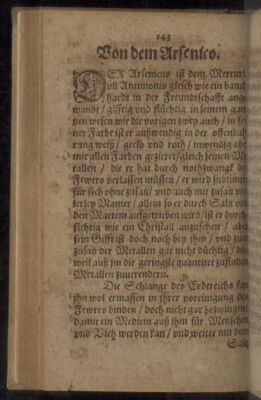 143
Von dem Arsenico.
DER Arsenicus ist dem Mercurio
vnd Antimonio gleich wie ein banck-
hardt in der Freundtschafft ange
wandt / gifftig vnd flüchtig in seinem gan
tzen wesen wie die vorigen zwey auch / in sei
ner Farbe ist er außwendig in der offenbah
rung weiß / geelb vnd roth / inwendig abe
mit allen Farben gezieret / gleich seinen Me
tallen / die er hat durch nothzwang des
Fewers verlassen müssen / er wird sublimirt
für sich ohne zusatz / vnd auch mit zusatz vie
lerley Manier / allein so er durch Saltz vnd
den Martem außgetrieben wird / ist er durch
sichtig wie ein Christall anzusehen / aber
sein Gifft ist doch noch bey jhm / vnd zum
zusatz der Metallen gar nicht düchtig / die
weil auß jm die geringste quantitet zufinden
Metallen zuverendern.
Die Schlange des Erdtreichs kan
jhn wol ermassen in jhrer voreinigung des
Fewers binden / doch nicht gar bezwingen
damit ein Medicin auß jhm für Menschen
vnd Vieh werden kan / vnd weiter mit dem
Saltz